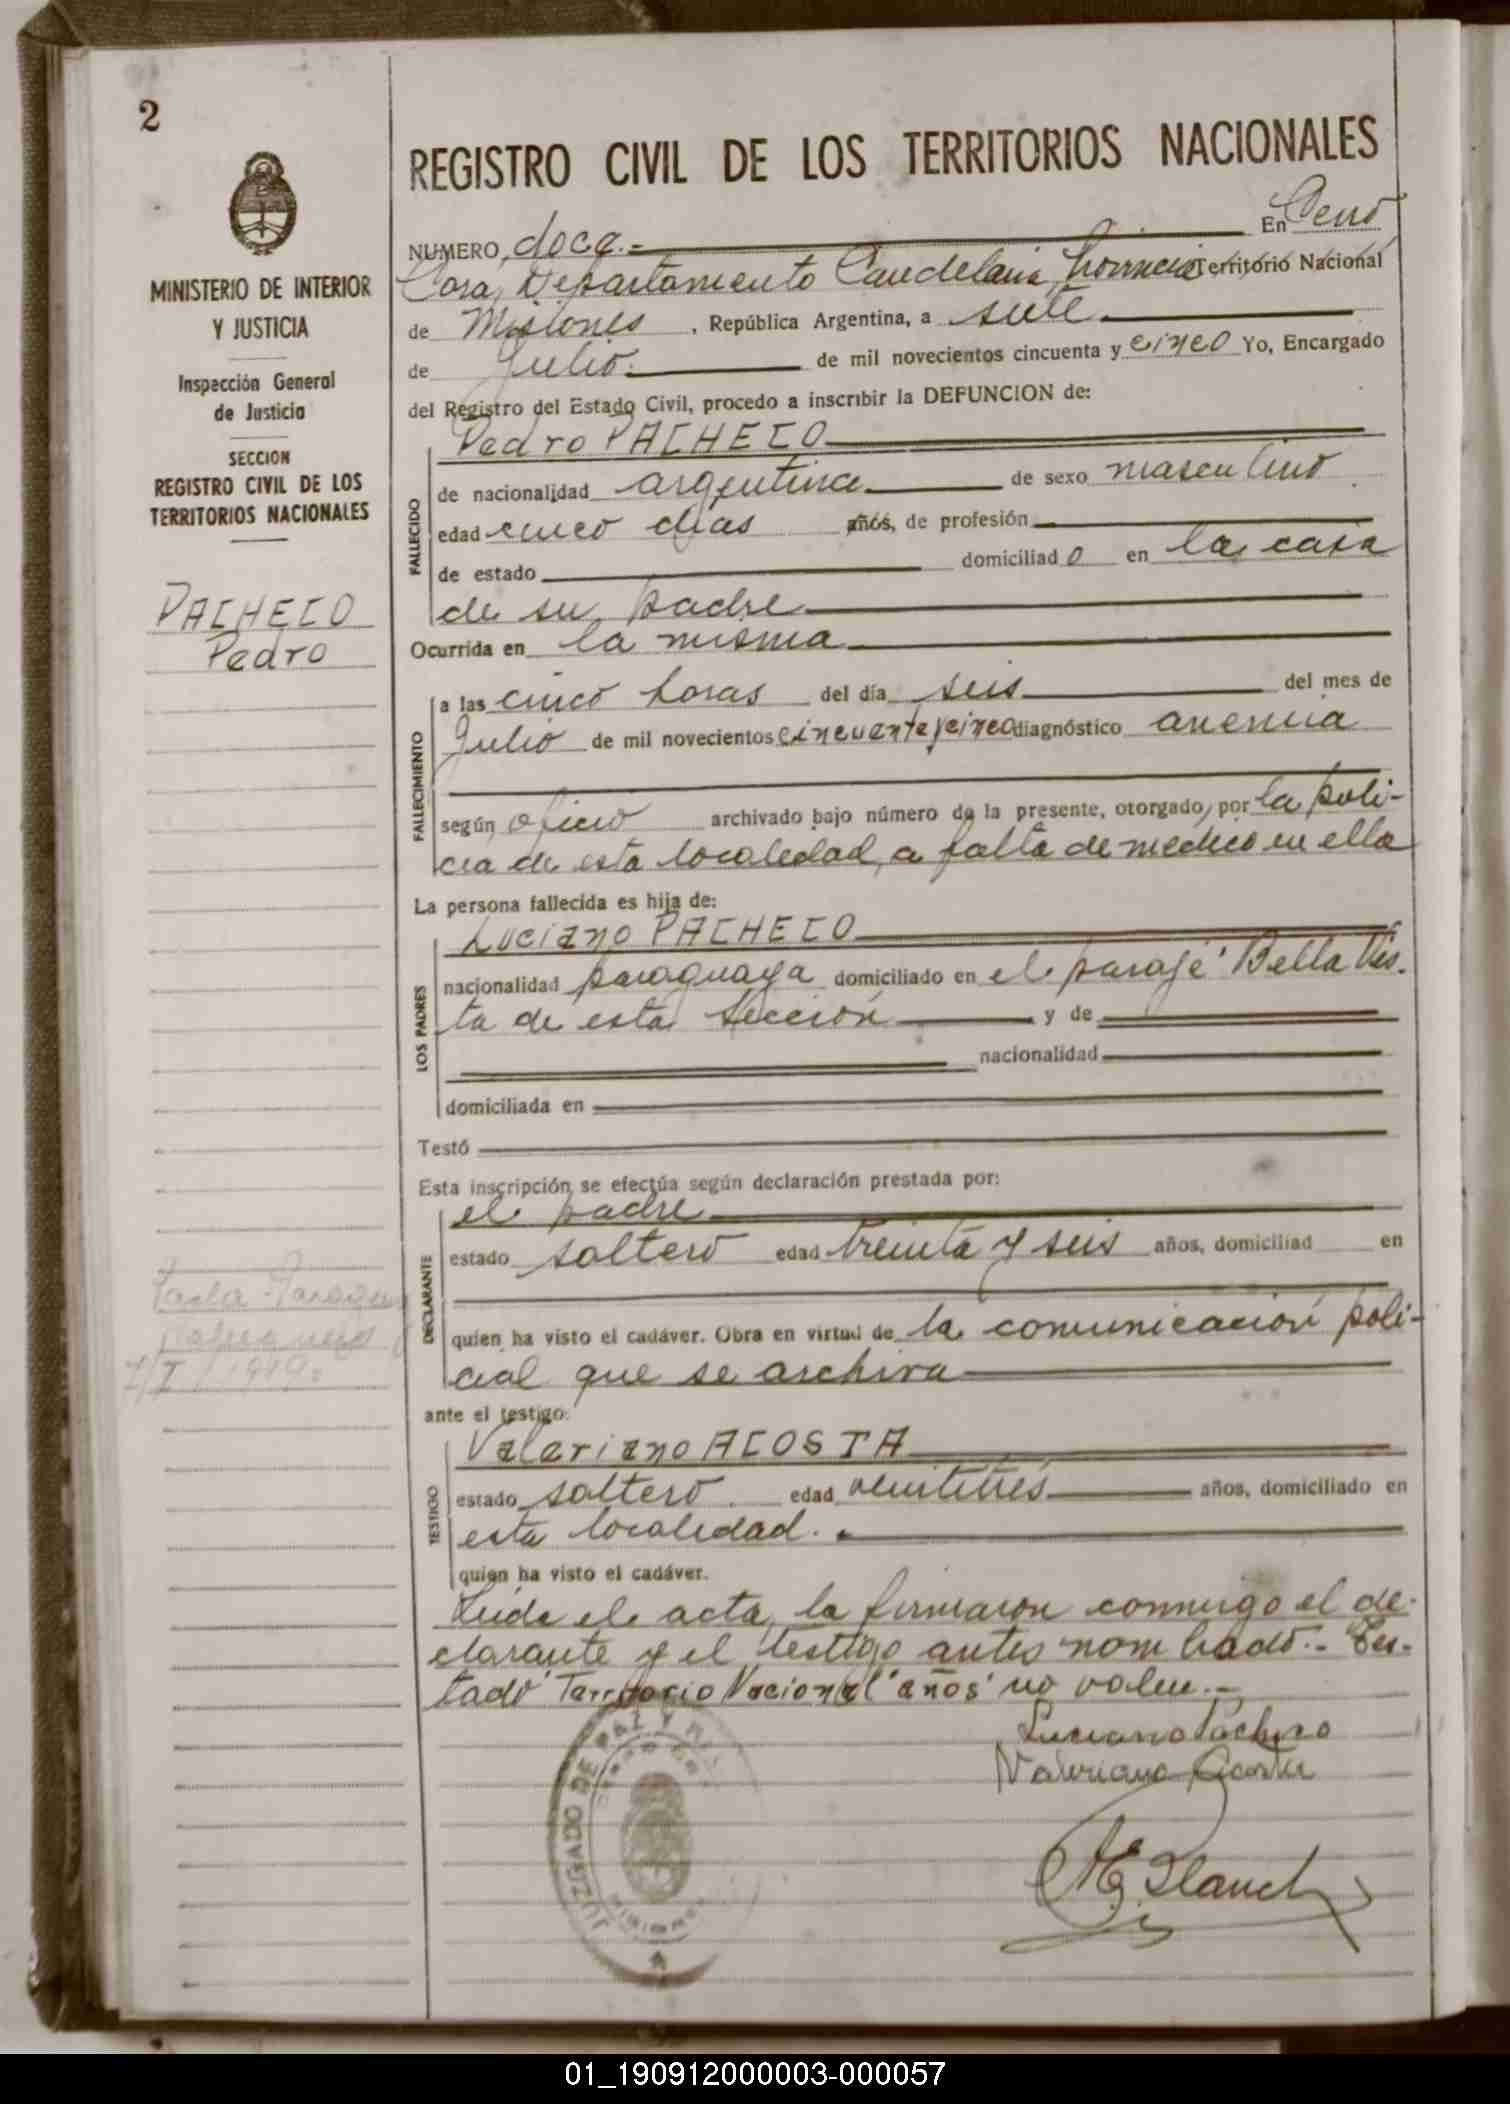 2
MINISTERIO DE INTERIOR
Y JUSTICIA
Inspección General
de Justicia
SECCION
REGISTRO CIVIL DE LOS
TERRITORIOS NACIONALES
PACHECO
Pedro
7/I/1919.
REGISTRO CIVIL DE LOS TERRITORIOS NACIONALES
NUMERO doce.- En Cerro
Cora, Departamento Candelaria, Provincia Territorio Nacional
de Misiones, República Argentina, a siete
de Julio. de mil novecientos cincuenta y cinco Yo, Encargado
del Registro del Estado Civil, procedo a inscribir la DEFUNCION de:
Pedro PACHECO
FALLECIDO
de nacionalidad argentina de sexo masculino
edad cinco dias años, de profesión
de estado domiciliado en la casa
de su padre
Ocurrida en la misma
FALLECIMIENTO
a las cinco horas del día seis del mes de
Julio de mil novecientos cincuenta y cinco diagnóstico anemia
según oficio archivado bajo número de la presente, otorgado por la poli-
cia de esta localidad, a falta de medico en ella
La persona fallecida es hija de:
LOS PADRES
Luciano PACHECO
nacionalidad paraguaya domiciliado en el paraje 'Bella Vis-
ta de esta Sección y de
nacionalidad
domiciliada en
Testó
Esta inscripción se efectúa según declaración prestada por:
DECLARANTE
el padre
estado soltero edad treinta y seis años, domiciliad en
quien ha visto el cadáver. Obra en virtud de la comunicación poli-
cial que se archiva
ante el testigo:
TESTIGO
Valeriano ACOSTA
estado soltero edad veintitrés años, domiciliado en
esta localidad.
quien ha visto el cadáver.
Leida el acta, la firmaron conmigo el de-
clarante y el testigo antes nombrado.- Tes-
tado 'Territorio Nacional' 'años' no valen.-
Luciano Pacheco
Valeriano Acosta
JUZGADO DE PAZ Y
MISIONES
01_190912000003-000057